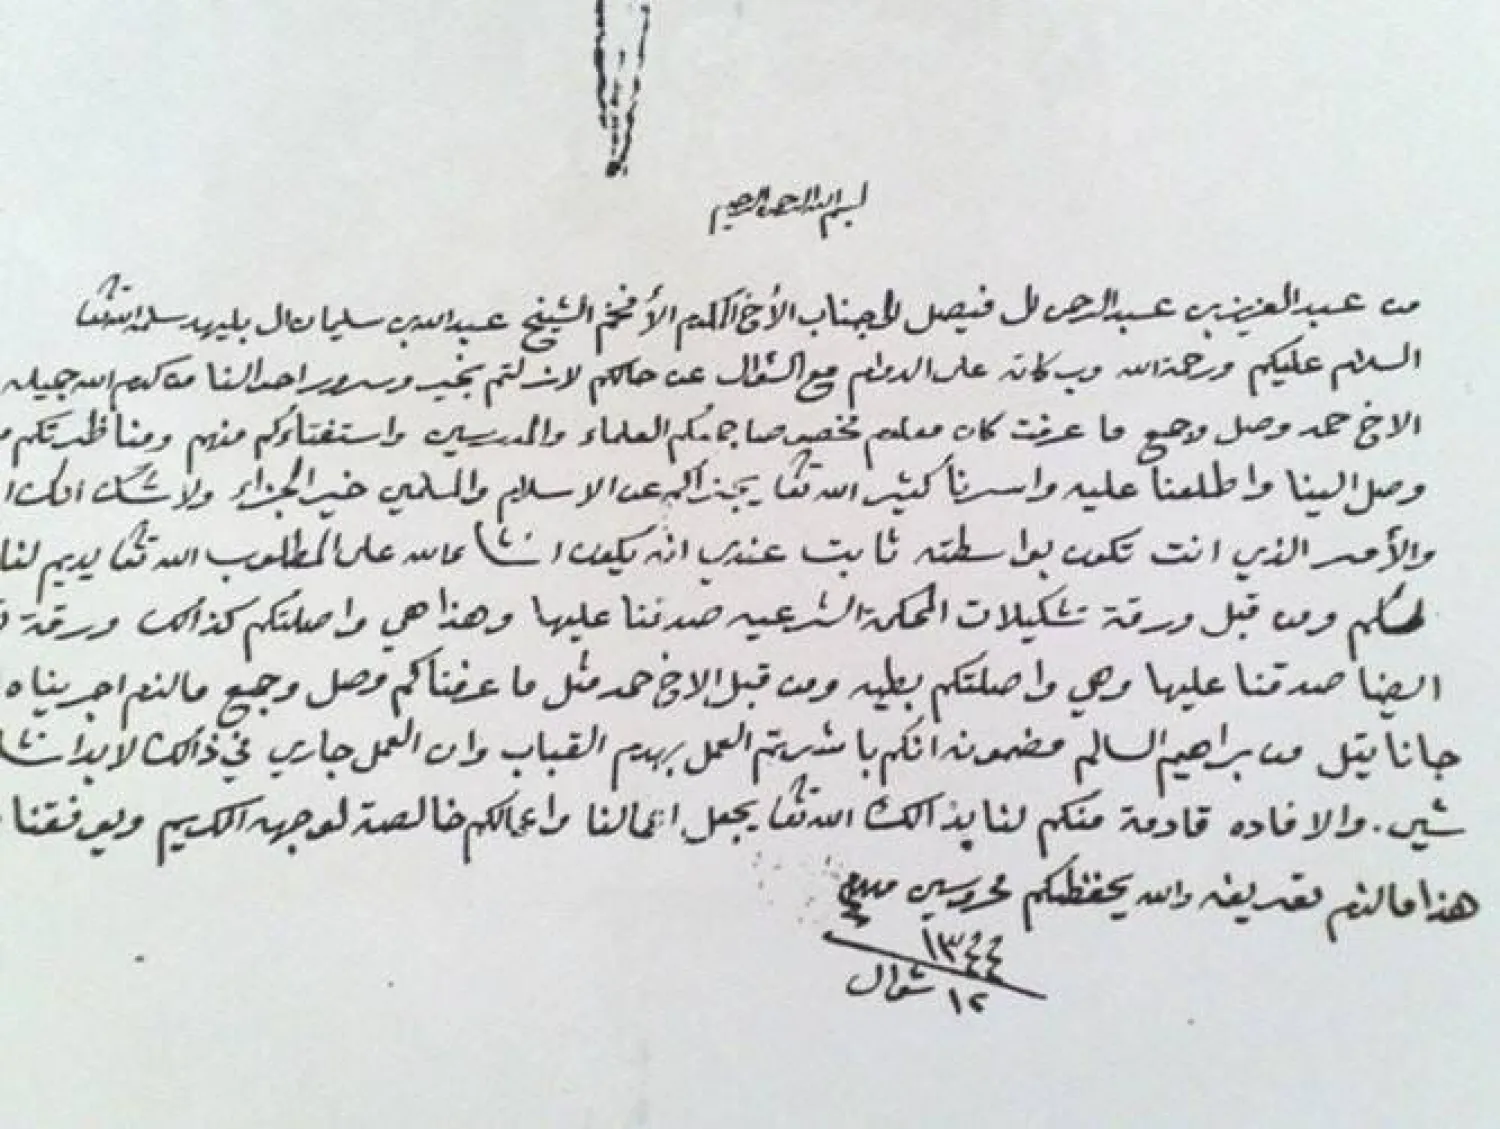 بسم الله الرحمن الرحيم
من عبد العزيز بن عبد الرحمن ال فيصل الى جناب الأخ المكرم الأفخم الشيخ عبد الله بن سليمان ال بليهد سلمه الله تعا
السلام عليكم ورحمة الله وبركاته على الدوام مع السؤال عن حالكم لازلتم بخير وسرور احوالنا من كرم الله جميله
الاخ حمد وصل وجميع ما عرفت كان معلوم مخصوص صا جابكم العلماء والمدرسين واستفتاءكم منهم ومناظرتكم
وصل الينا واطلعنا عليه واسرنا كثير الله تعا يجزاكم عن الاسلام والمسلمين خير الجزاء ولاشك انك
والأمر الذي انت تكون بواسطته ثابت عندي انه يكون انشا الله على المطلوب الله تعا يديم لنا
ومن قبل ورقة تشكيلات المحكمة الشرعيه صدقنا عليها وهذا هي واصلتكم كذالك ورقة
ايضا صدقنا عليها وهي واصلتكم بطيه ومن قبل الاخ حمد مثل ما عرفناكم وصل وجميع مالزم اجريناه
جانا بتل من براهيم السالم مضمونه انكم باشرتم العمل بهدم القباب وان العمل جاري في ذالك لابد انشا
شين. والافاده قادمة منكم لنا بذالك الله تعا يجعل اعمالنا واعمالكم خالصة لوجهه الكريم ويوفقنا
هذا مالزم تعريفه والله يحفظكم محروسين
١٣٤٤
١٢ شوال